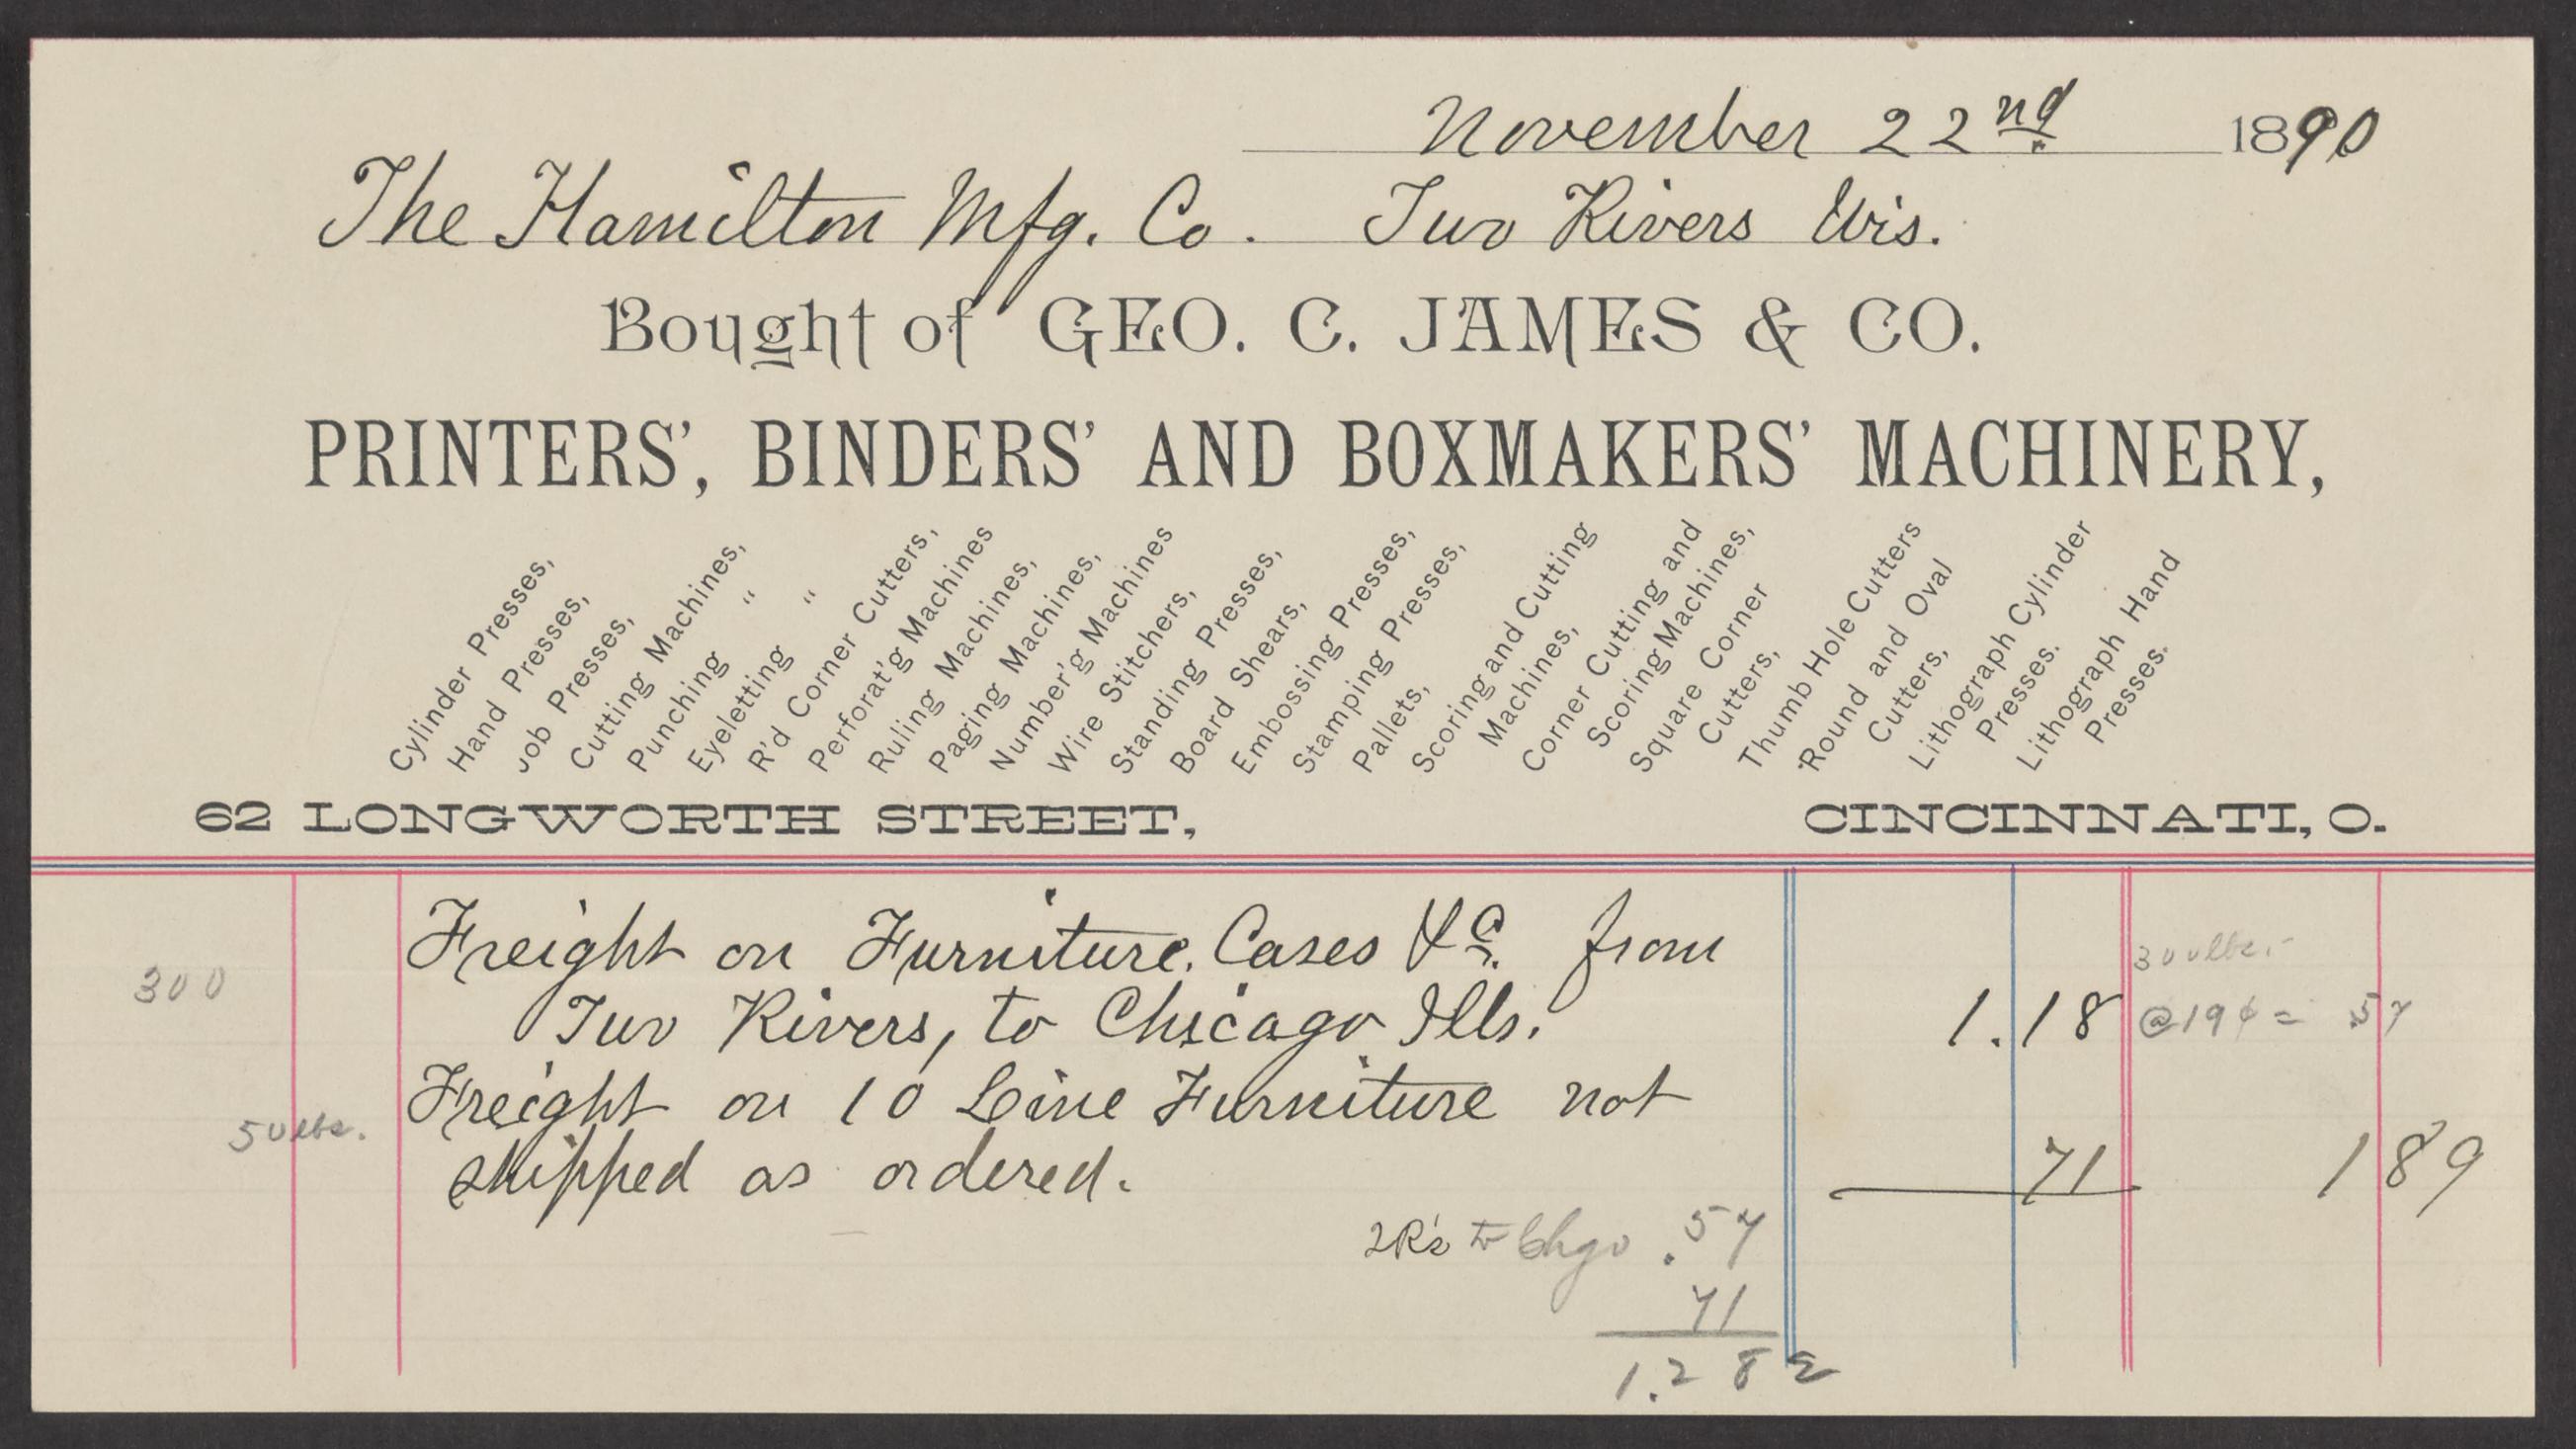 November 22nd 1890
The Hamilton Mfg. Co. Two Rivers Wis.
Bought of GEO. C. JAMES & CO.
PRINTERS', BINDERS' AND BOXMAKERS' MACHINERY,
Cylinder Presses,
Hand Presses,
Job Presses,
Cutting Machines,
Punching "
Eyeletting "
R'd Corner Cutters,
Perforat'g Machines
Ruling Machines,
Paging Machines,
Number'g Machines
Wire Stitchers,
Standing Presses,
Board Shears,
Embossing Presses,
Stamping Presses,
Pallets,
Scoring and Cutting
Machines,
Corner Cutting and
Scoring Machines,
Square Corner
Cutters,
Thumb Hole Cutters
Round and Oval
Cutters,
Lithograph Cylinder
Presses.
Lithograph Hand
Presses.
62 LONGWORTH STREET, CINCINNATI, O.
Freight on Furniture, Cases &c. from 300lbs.
300 Two Rivers, to Chicago Ills. 1.18 @19¢ = .57
50lbs. Freight on 10 Line Furniture not
shipped as ordered. 71 189
2R's to Chgo .57
71
1.28